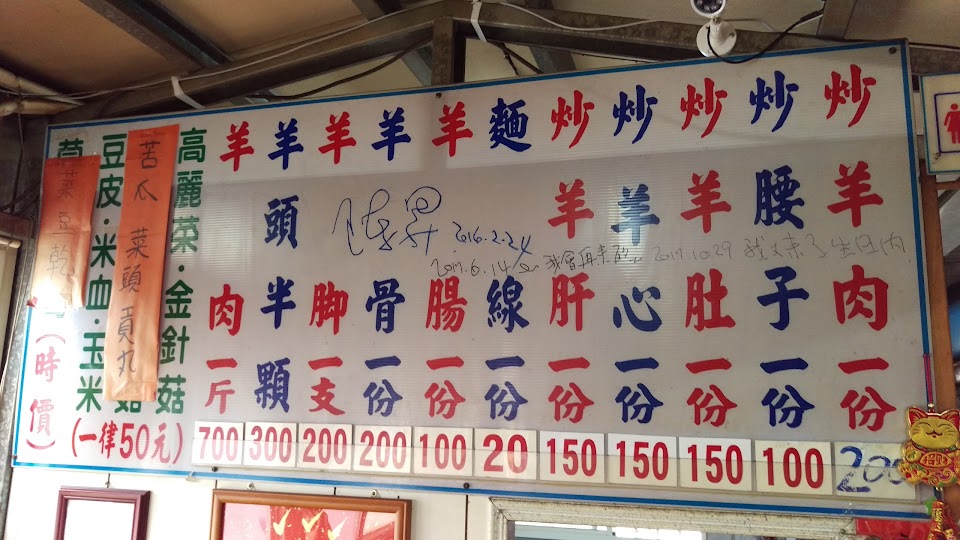 炒羊肉一份 200
炒腰子一份 100
炒羊肚一份 150
炒羊心一份 150
炒羊肝一份 150
麵線一份 20
羊腸一份 100
羊骨一份 200
羊腳一支 200
羊頭半顆 300
羊肉一斤 700
高麗菜·金針菇
豆皮·米血·玉米
(一律50元)
苦瓜 菜頭 貢丸
菜豆乾
(時價)
2016.2.24
2017.6.14 我會再來的
2017.10.29 我又來了